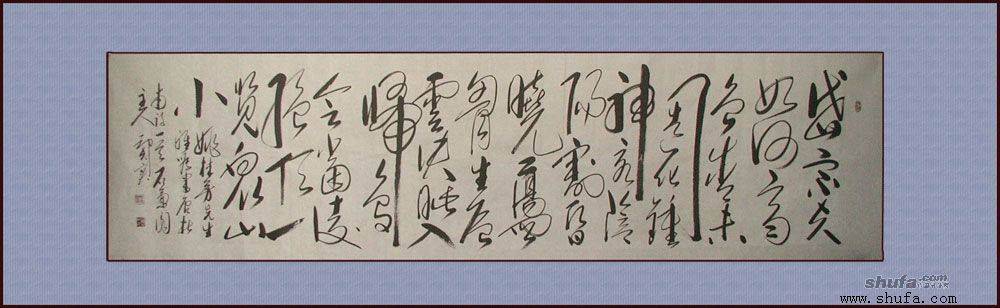 岱宗夫
如何齊
魯青未
了造化鍾
神秀陰
陽割昏
曉盪
胸生層
雲決眥入
歸鳥
會當凌
絕頂一
覽眾山
小
先生
書唐杜
甫詩一首石
主人
shufa.com
www.shufa.com